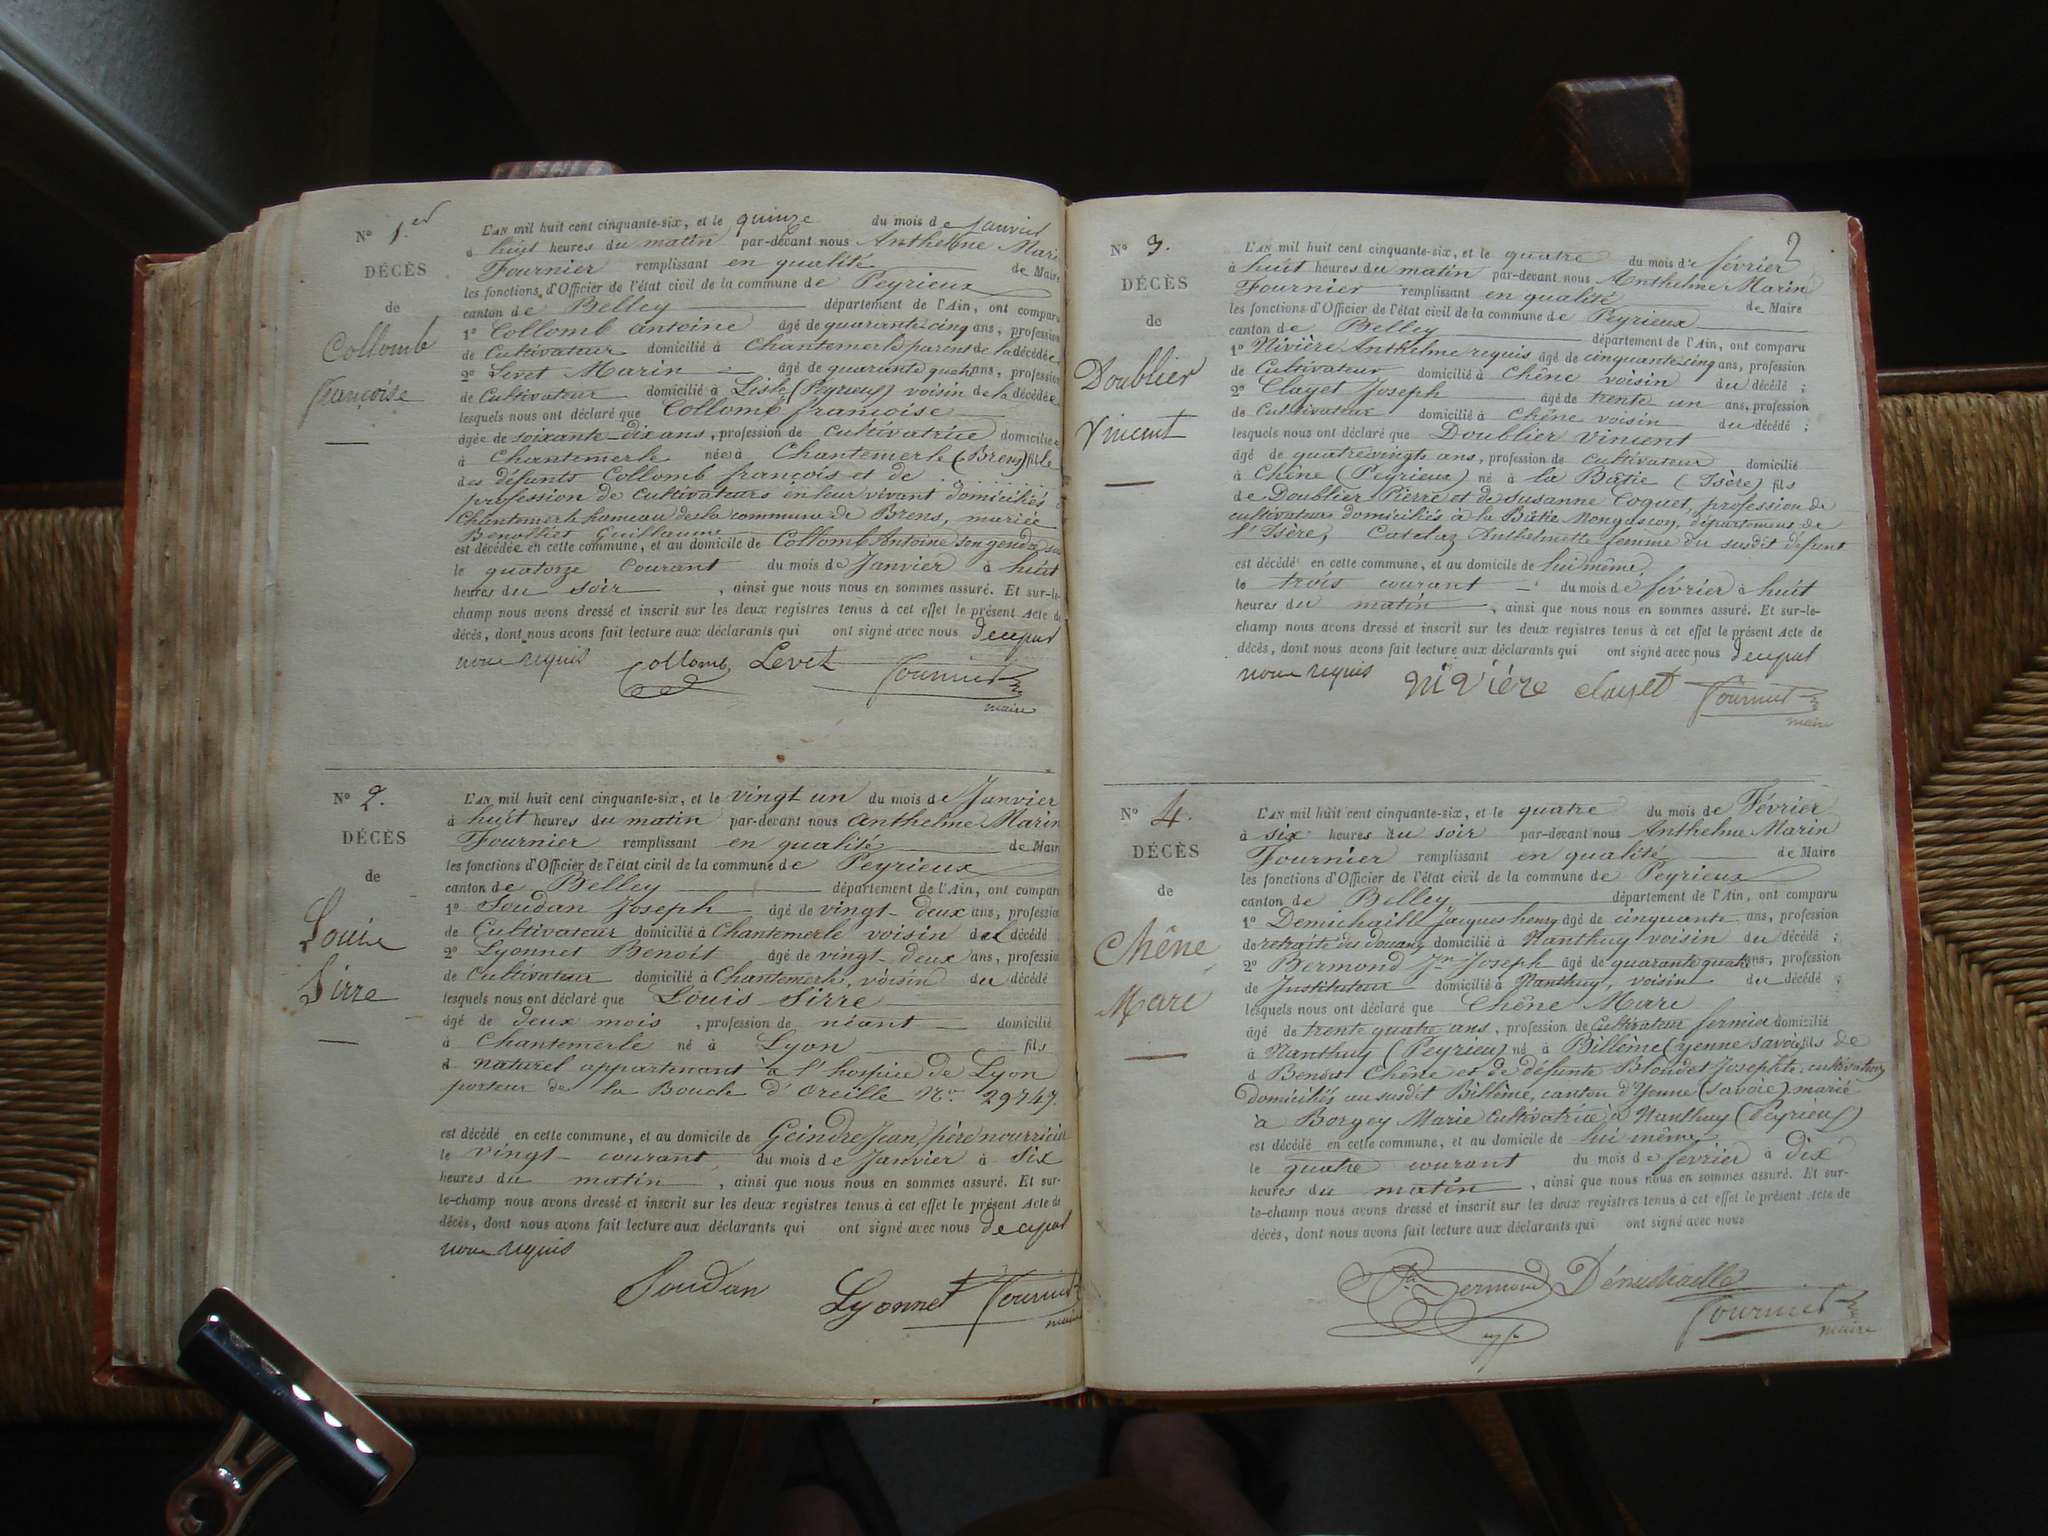 N° 1.er
DÉCÈS
de
Collomb
françoise
L'AN mil huit cent cinquante-six, et le quinze du mois de Janvier
à huit heures du matin par-devant nous Anthelme Mari
Fournier remplissant en qualité de Maire
les fonctions d'Officier de l'état civil de la commune de Peyrieux
canton de Belley département de l'Ain, ont comparu
1° Collomb Antoine âgé de quarante-cinq ans, profession
de Cultivateur domicilié à Chantemerle parent de la décédée
2° Levet Marin âgé de quarante quatre ans, profession
de Cultivateur domicilié à Lisle (Peyrieux) voisin de la décédée
lesquels nous ont déclaré que Collomb françoise
âgée de soixante-dix ans, profession de cultivatrice domiciliée
à Chantemerle née à Chantemerle (Brens) fille
des défunts Collomb françois et de
profession de cultivateurs en leur vivant domiciliés à
Chantemerle hameau de la commune de Brens, mariée
Guillaume
est décédée en cette commune, et au domicile de Collomb Antoine son gendre
le quatorze courant du mois de Janvier à huit
heures du soir, ainsi que nous nous en sommes assuré. Et sur-le-
champ nous avons dressé et inscrit sur les deux registres tenus à cet effet le présent Acte de
décès, dont nous avons fait lecture aux déclarants qui ont signé avec nous de ce par
nous requis
Collomb Levet Fournier
maire
N° 2.
DÉCÈS
de
Louis
Sirre
L'AN mil huit cent cinquante-six, et le vingt un du mois de Janvier
à huit heures du matin par-devant nous Anthelme Marin
Fournier remplissant en qualité de Mair
les fonctions d'Officier de l'état civil de la commune de Peyrieux
canton de Belley département de l'Ain, ont comparu
1° Soudan Joseph âgé de vingt-deux ans, profession
de Cultivateur domicilié à Chantemerle voisin du décédé
2° Lyonnet Benoit âgé de vingt-deux ans, profession
de Cultivateur domicilié à Chantemerle, voisin du décédé
lesquels nous ont déclaré que Louis Sirre
âgé de deux mois, profession de néant domicilié
à Chantemerle né à Lyon fils
d naturel appartenant à l'hospice de Lyon
porteur de la Boucle d'oreille N° 29747.
est décédé en cette commune, et au domicile de Geindre Jean, père nourricier
le vingt courant du mois de Janvier à six
heures du matin, ainsi que nous nous en sommes assuré. Et sur-
le-champ nous avons dressé et inscrit sur les deux registres tenus à cet effet le présent Acte de
décès, dont nous avons fait lecture aux déclarants qui ont signé avec nous de ce par
nous requis
Soudan Lyonnet Fournier
maire
2
N° 3.
DÉCÈS
de
Doublier
Vincent
L'AN mil huit cent cinquante-six, et le quatre du mois de février
à huit heures du matin par-devant nous Anthelme Marin
Fournier remplissant en qualité de Maire
les fonctions d'Officier de l'état civil de la commune de Peyrieux
canton de Belley département de l'Ain, ont comparu
1° Nivière Anthelme requis âgé de cinquante cinq ans, profession
de Cultivateur domicilié à Chêne voisin du décédé ;
2° Clayet Joseph âgé de trente un ans, profession
de Cultivateur domicilié à Chêne voisin du décédé ;
lesquels nous ont déclaré que Doublier vincent
âgé de quatre vingts ans, profession de cultivateur domicilié
à Chêne (Peyrieux) né à la Bâtie (Isère) fils
de Doublier Pierre et de Susanne Coquet, profession de
cultivateurs domiciliés à la Bâtie Mongascon, département de
l'Isère, Catelaz Anthelmette femme du susdit défunt
est décédé en cette commune, et au domicile de lui même
le trois courant du mois de février à huit
heures du matin, ainsi que nous nous en sommes assuré. Et sur-le-
champ nous avons dressé et inscrit sur les deux registres tenus à cet effet le présent Acte de
décès, dont nous avons fait lecture aux déclarants qui ont signé avec nous de ce par
nous requis
Nivière Clayet Fournier
maire
N° 4.
DÉCÈS
de
Chêne
Marc
L'AN mil huit cent cinquante-six, et le quatre du mois de Février
à six heures du soir par-devant nous Anthelme Marin
Fournier remplissant en qualité de Maire
les fonctions d'Officier de l'état civil de la commune de Peyrieux
canton de Belley département de l'Ain, ont comparu
1° Demichaille Jacques henry âgé de cinquante ans, profession
de retraité des douanes domicilié à Nanthuy voisin du décédé ;
2° Bermond Jn Joseph âgé de quarante quatre ans, profession
de Instituteur domicilié à Nanthuy, voisin du décédé ;
lesquels nous ont déclaré que Chêne Marc
âgé de trente quatre ans, profession de Cultivateur fermier domicilié
à Nanthuy (Peyrieu) né à Billème (yenne savoie) fils de
d Benoit Chêne et de défunte Bloudet Josephte, cultivateurs
domiciliés au susdit Billème, canton d'Yenne (savoie) marié
à Borgey Marie Cultivatrice à Nanthuy (Peyrieux)
est décédé en cette commune, et au domicile de lui même
le quatre courant du mois de février à dix
heures du matin, ainsi que nous nous en sommes assuré. Et sur-
le-champ nous avons dressé et inscrit sur les deux registres tenus à cet effet le présent Acte de
décès, dont nous avons fait lecture aux déclarants qui ont signé avec nous
Bermond Démichaille
Fournier
maire